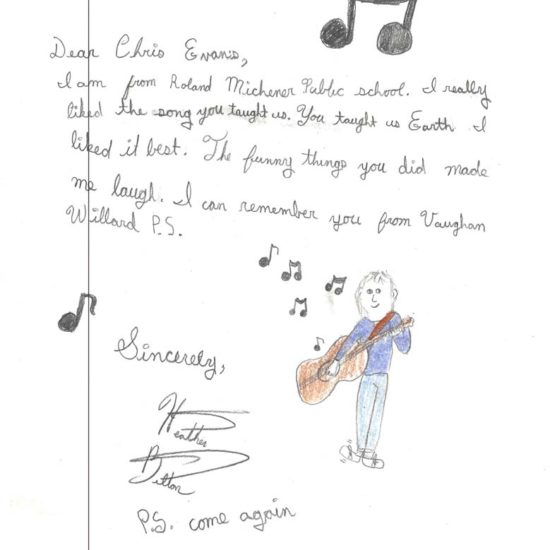 Dear Chris Evans,
I am from Roland Michener Public school. I really
liked the song you taught us. You taught us Earth. I
liked it best. The funny things you did made
me laugh. I can remember you from Vaughan
Willard P.S.
Sincerely,
Heather
P.S. come again